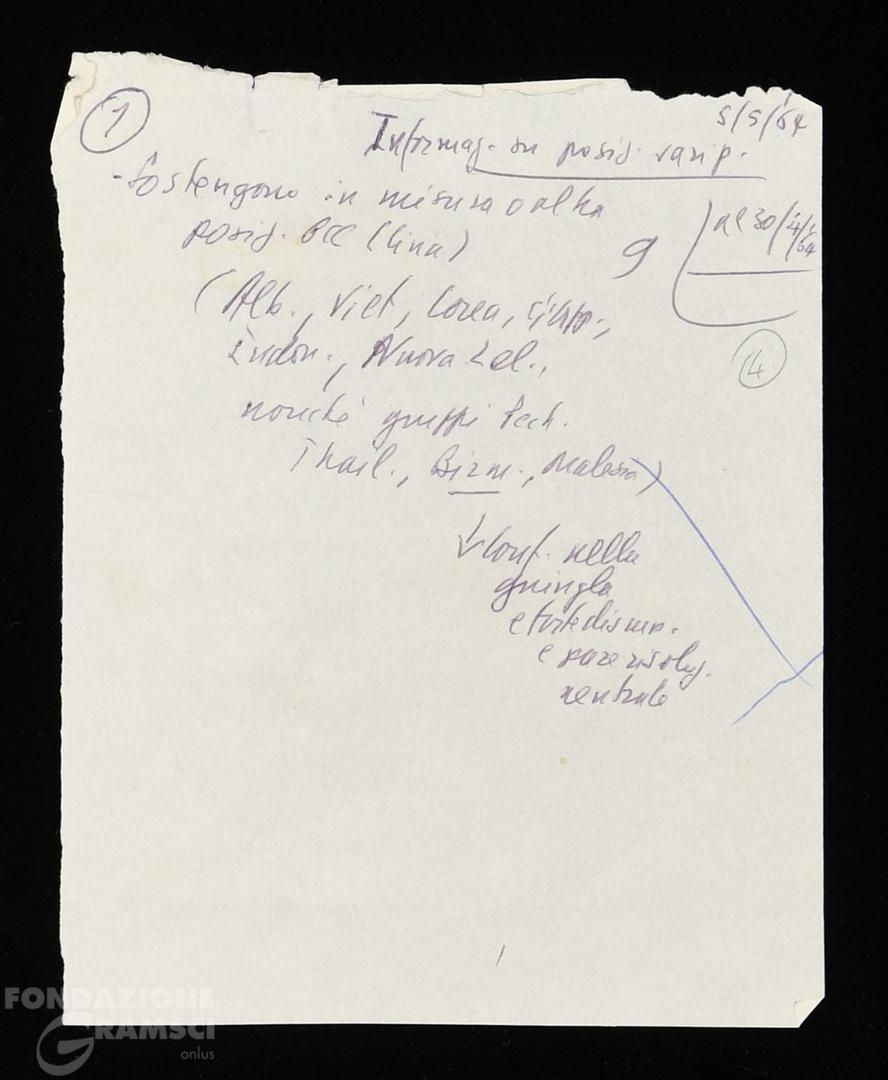 1
5/5/64
Informaz. su posiz. vari p.
- Sostengono in misura o altra
posiz. PCC (Cina)
9
al 30/4/64
(Alb., Viet, Corea, Giapp.,
4
Indon., Nuova Zel.,
nonché gruppi Pech.
Thail., Birm., Malesia)
Conf. nella
giungla
e forte disump.
e pare risoluz.
neutrale
FONDAZIONE
GRAMSCI
onlus